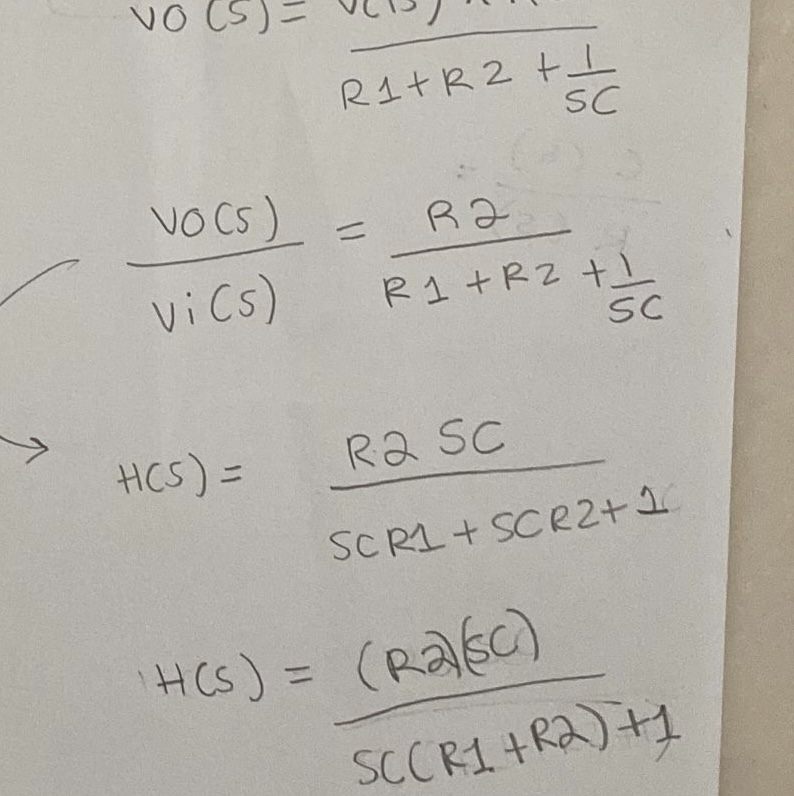 VO(S) =
R1+R2 + 1/SC
VO(S)/Vi(S) = R2/(R1+R2+1/SC)
H(S) = R2 SC/(SCR1+SCR2+1)
H(S) = (R2)(SC)/(SC(R1+R2)+1)